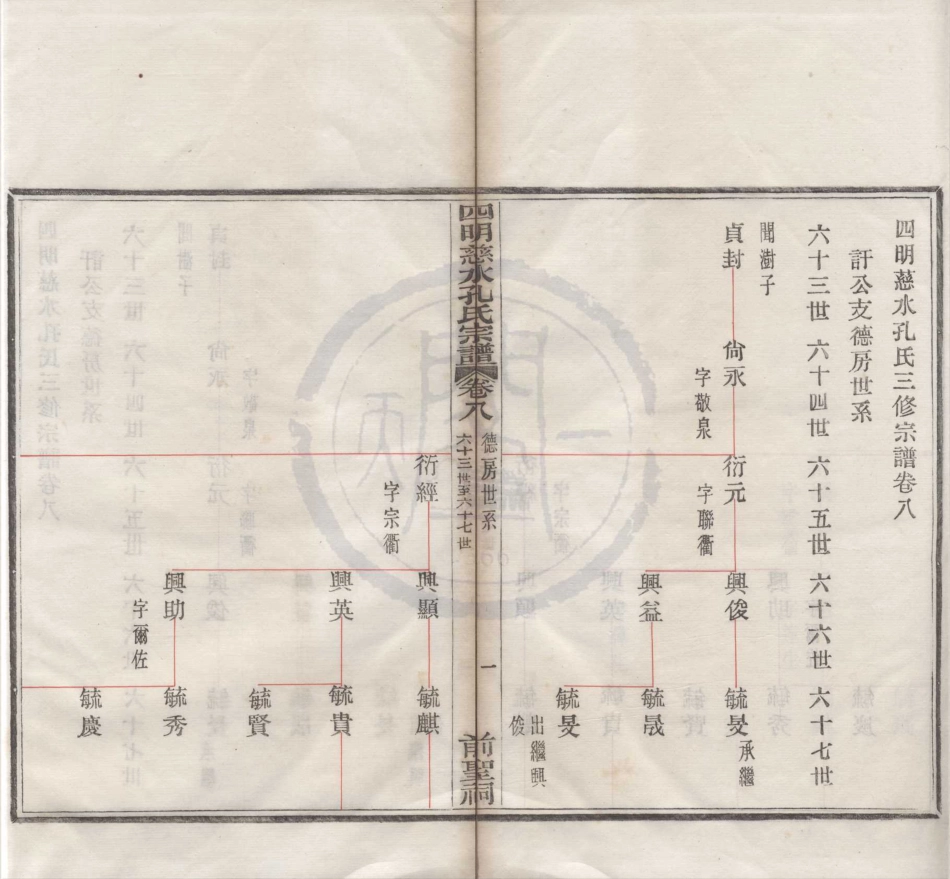 四明慈水孔氏三修宗譜卷八
訐公支德房世系
六十三世 六十四世 六十五世 六十六世 六十七世
聞澍子
貞封 尙永 衍元 興俊 毓旻 承繼
字敬泉 字聯衢
興益 毓晟
毓旻 出繼興俊
四明慈水孔氏宗譜 卷八 德房世系 六十三世至六十七世 一 前聖祠
衍經 興顯 毓麒
字宗衢
興英 毓貴
毓賢
興助 毓秀
字爾佐
毓慶